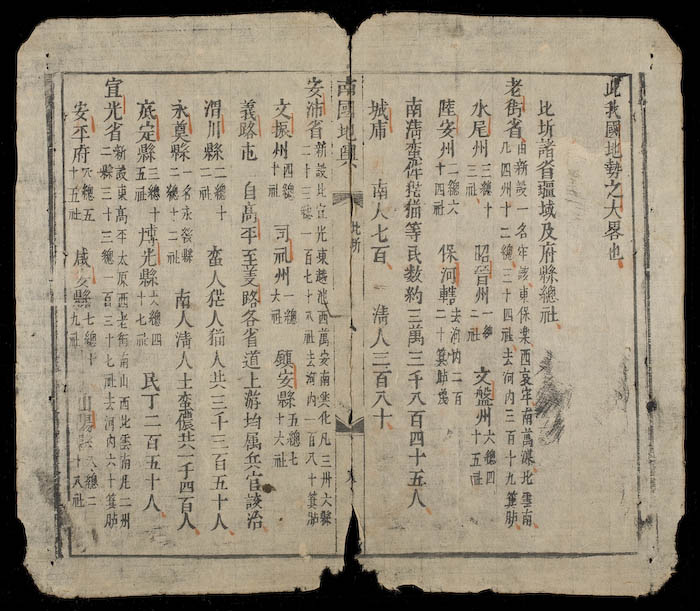 此我國地勢之大畧也
北圻諸省疆域及府縣總社
老街省 由新設一名牢該東保樂西哀牢南萬謀北雲南凡四州十二總三十四社去河內三百十九箕肺
水尾州 三總十社 昭晉州 一總社 文盤州 六總四十五社
陸安州 二總六十四社 保河轄 去河內二百二十箕肺幾
南清蠻猫等氏數約三萬三千八百四十五人
城庯 南人七百 清人三百八十
南國地輿 北圻 八
安沛省 新設北宜光東越池西萬安南興化凡三州六縣二十三總一百七十八社去河內一百八十箕肺
文振州 四總社 司州 一總六社 鎮安縣 五總七十六社
義路屯 自高平至義路各省道上游均属兵官該治
渭川縣 二總十二社 蠻人茫人猫人共三千三百五十人
永奠縣 一名永綏縣二總十二社 南人清人土蠻儂共一千四百人
底定縣 三總十五社 博光縣 六總四十七社 民丁二百五十人
宜光省 新設東高平太原西老街南山西北雲南凡二州二縣三十三總百三十七社去河內六十箕肺
安平府 八總五十五社 咸安縣 七總十九社 山陽縣 八總二十八社